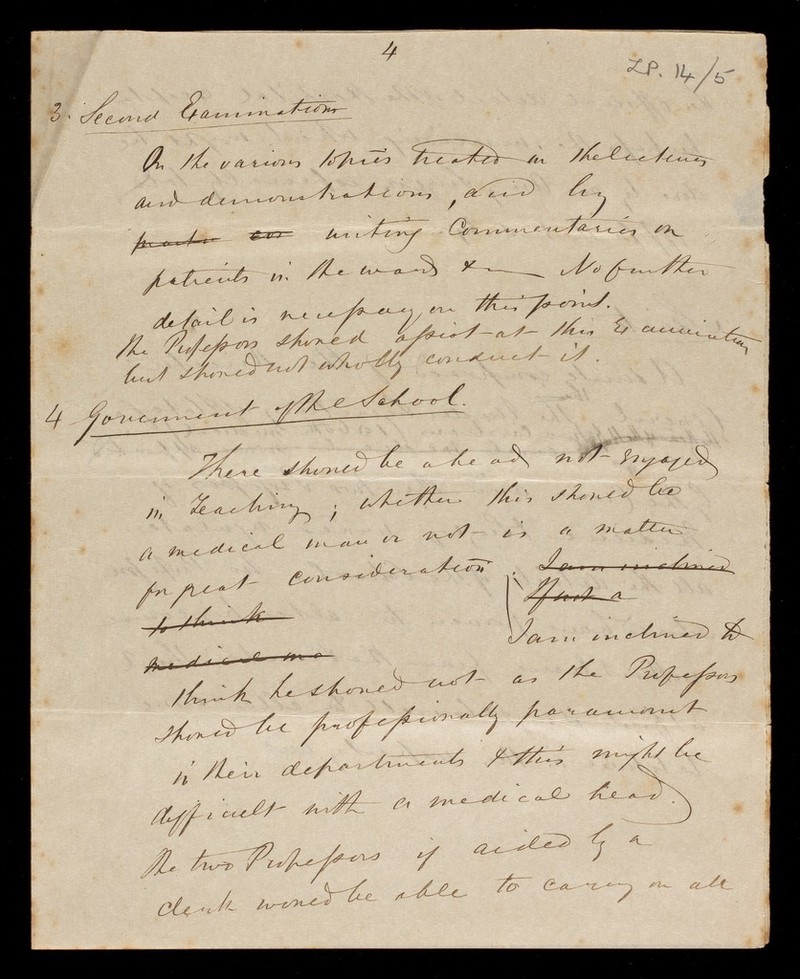 4
LP. 14/5
3. Second Examinations
On the various topics treated in the lectures
and demonstrations, and by
writing Commentaries on
patients in the wards & — No further
detail is necessary on this point.
The Professors should assist at this Examination
but should not wholly conduct it.
4 Government of the School.
There should be a head not engaged
in Teaching; whether this should be
a medical man or not is a matter
for great consideration. I am inclined
to think If not a
medical ma
I am inclined to
think he should not as the Professors
should be professionally paramount
in their departments & this might be
difficult with a medical head.)
The two Professors if aided by a
clerk would be able to carry on all